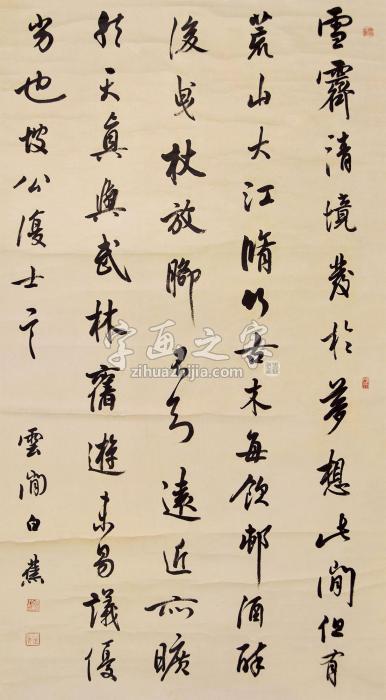 雪霽清境發於夢想此間但有
荒山大江脩竹古木每飲邨酒醉
後曳杖放腳不知遠近亦曠
然天真與武林舊遊未易議優
劣也坡公復士
雲間白蕉
字画之家
zihuazhijia.com